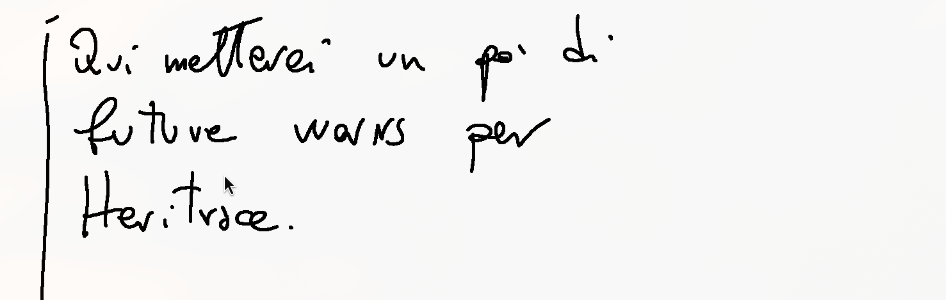 Qui metterei un po' di
future works per
Heritrace.